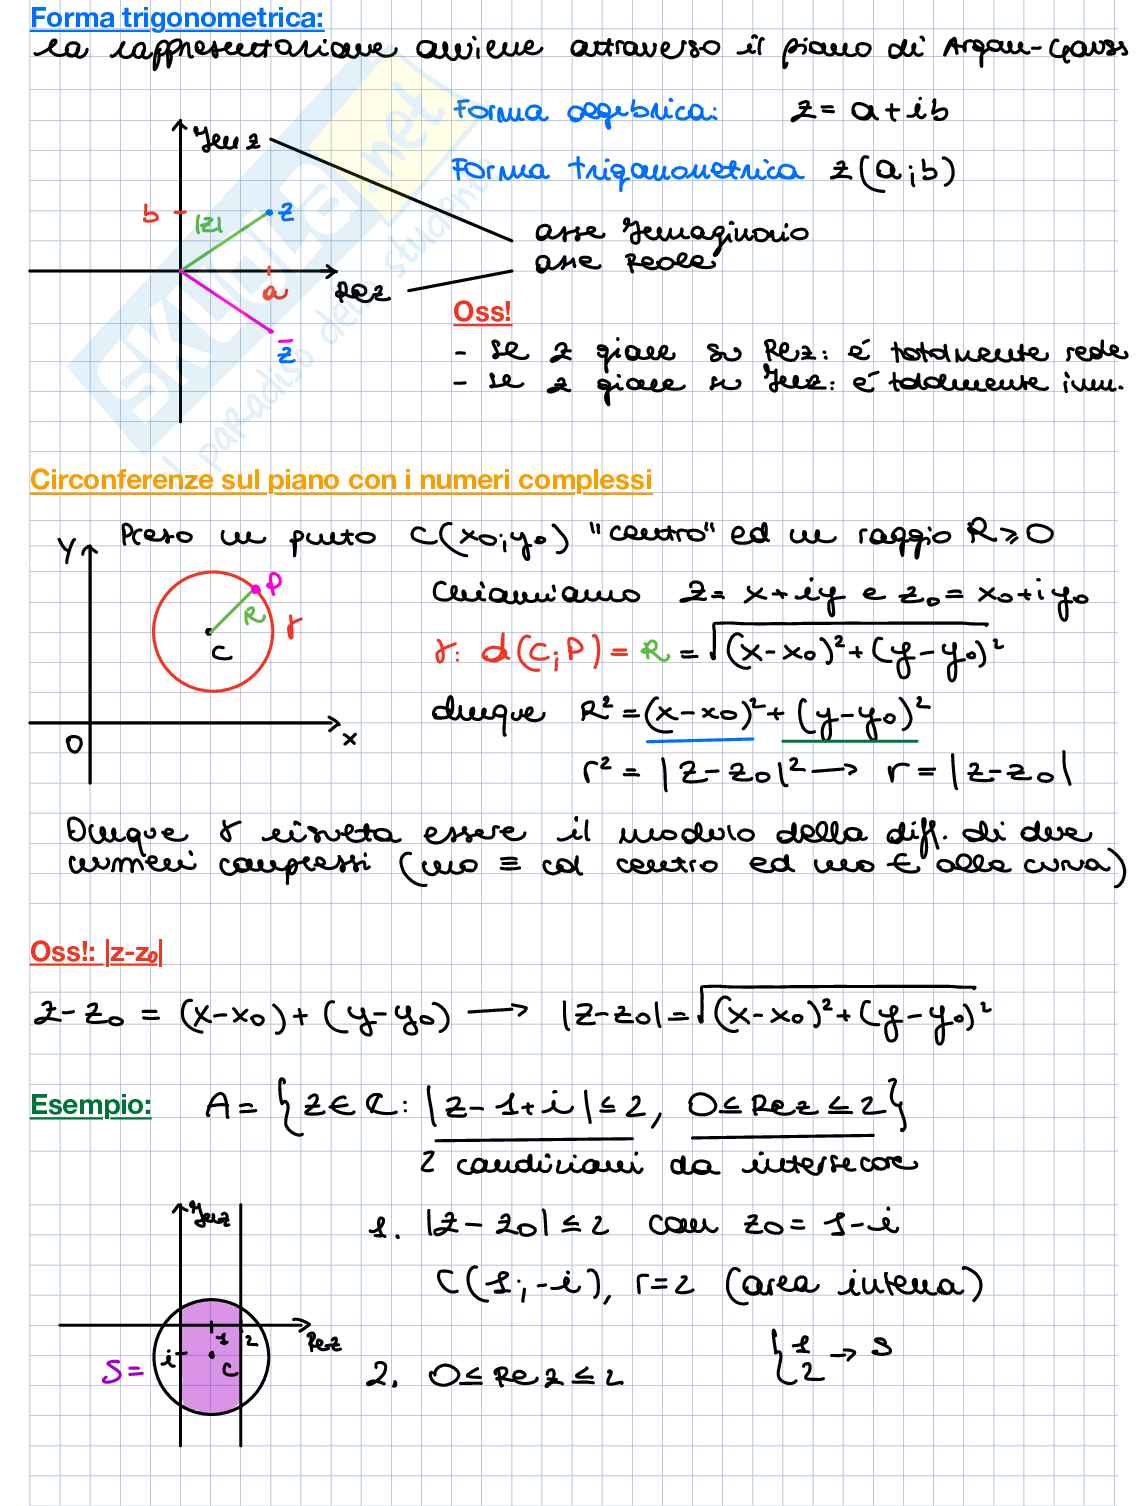 Forma trigonometrica:
la rappresentazione avviene attraverso il piano di Argan-Gauss
Forma algebrica: z = a + ib
Forma trigonometrica z(a;b)
Im z
b
|z|
z
asse Immaginario
asse Reale
a
Re z
z̄
Oss!
- se z giace su Re z: é totalmente reale
- se z giace su Im z: é totalmente imm.
SKUOLA.net
il paradiso dello studente
Circonferenze sul piano con i numeri complessi
Preso un punto C(x0;y0) "centro" ed un raggio R⩾0
Y
P
R
γ
C
O
x
Chiamiamo z = x+iy e z0 = x0+iy0
γ: d(C;P) = R = √(x-x0)²+(y-y0)²
dunque R² = (x-x0)²+(y-y0)²
r² = |z-z0|² → r = |z-z0|
Dunque γ risulta essere il modulo della diff. di due
numeri complessi (uno ≡ col centro ed uno ∈ alla curva)
Oss!: |z-z0|
z-z0 = (x-x0)+(y-y0) → |z-z0| = √(x-x0)²+(y-y0)²
Esempio: A = {z∈ℂ: |z-1+i| ≤ 2, 0≤Re z≤2}
2 condizioni da intersecare
Im z
1
2
Re z
i
C
S =
1. |z-z0| ≤ 2 con z0 = 1-i
C(1;-i), r=2 (area interna)
2. 0≤Re z≤2
{1 2 → S